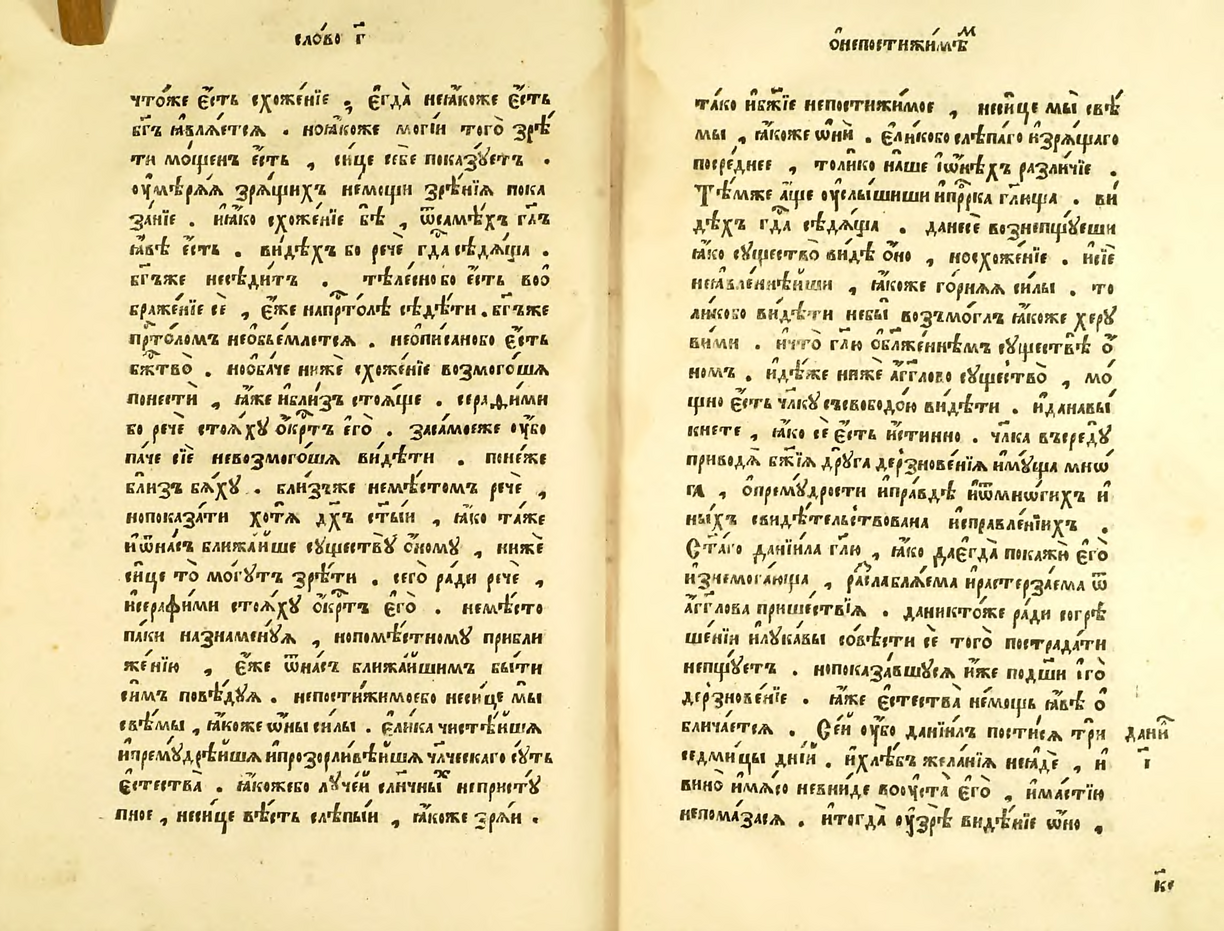 сло́во г҃
что́же є҆́сть схоже́нїе , є҆гда̀ неꙗ҆́коже є҆́сть
бг҃ъ ꙗ҆влѧ́етсѧ . ноꙗ҆́коже моги́и того̀ зрѣ́
ти мо́щенъ є҆́сть , си́це себѐ пока́зꙋетъ .
оу҆мѣ́рѧѧ зрѧ́щихъ не́мощи зрѣ́нїѧ пока
за́нїе . и҆ꙗ҆́ко схоже́нїе бѣ̀ , ѿсамѣ́хъ гл҃ъ
ꙗ҆́вѣ є҆́сть . ви́дѣхъ бо речѐ гд҇а сѣдѧ́ща .
бг҃ъже несѣди́тъ . тѣле́сно бо є҆́сть воѡ
браже́нїе сѐ , є҆́же напрⷭ҇то́лѣ сѣдѣ́ти . бг҃ъже
прⷭ҇то́ломъ необье́млетсѧ . неопи́санобо є҆́сть
бж҃тво̀ . нооба́че ни́же схоже́нїе возмого́шѧ
понестѝ , ꙗ҆́же и҆бли́зъ стоѧ́ще . серафи́ми
бо речѐ стоѧ́хꙋ о҆́крⷭ҇тъ є҆го̀ . заса́моеже оу҆́бо
па́че сїѐ невозмого́шѧ ви́дѣти . поне́же
бли́зъ бѧ́хꙋ . бли́зъже немѣ́стомъ речѐ ,
нопоказа́ти хотѧ̀ дх҃ъ ст҃ы́и , ꙗ҆́ко та́же
и҆ѿна́съ ближа́йше сꙋществꙋ̀ о҆́номꙋ , ни́же
си́це то̀ мо́гꙋтъ зрѣ́ти . сего̀ ра́ди речѐ ,
и҆серафи́ми стоѧ́хꙋ о҆́крⷭ҇тъ є҆го̀ . немѣ́сто
па́ки назна́менꙋѧ , нопомѣ́стномꙋ прибли
же́нїю , є҆́же ѿна́съ ближа́йшимъ бы́ти
си́мъ повѣ́дꙋѧ . непостижи́моебо неси́це мы̀
свѣ́мы , ꙗ҆́коже ѡ҆́ны си́лы . є҆ли́ка чистѣ́йшѧ
и҆премꙋдрѣ́йшѧ и҆прозорли́вѣйшѧ чл҃ческаго сꙋ́ть
є҆стества̀ . ꙗ҆́кожебо лꙋче́й сл҃нчныⷯ непристꙋ́
пное , неси́це вѣ́сть слѣпы́и , ꙗ҆́коже зрѧ́и .
ѡ҆непостижи́мѣⷨ
та́ко и҆бж҃їе непостижи́мое , неси́це мы̀ свѣ́
мы , ꙗ҆́коже ѡ҆нѝ . є҆ли́кобо слѣпа́го и҆зрѧ́щаго
посре́днее , толи́ко на́ше і҆ѡ҆нѣ́хъ разли́чїе .
Тѣ́мже а҆́ще оу҆слы́шиши и҆прⷪ҇рка гл҃юща . ви́
дѣхъ гд҇а сѣдѧ́ща . данесѐ вознепщꙋ́еши
ꙗ҆́ко сꙋщество̀ ви́дѣ о҆́но , носхоже́нїе . и҆сїѐ
неꙗвле́ннѣйши , ꙗ҆́коже го́рнѧѧ си́лы . то
ли́кобо ви́дѣти небы̀ возъмо́глъ ꙗ҆́коже херꙋ
ви́ми . и҆что̀ гл҃ю о҆бл҃же́ннѣмъ сꙋществѣ̀ о҆́
номъ . и҆дѣ́же ни́же а҆́гг҃лово сꙋщество̀ , мо́
щно є҆́сть чл҃кꙋ съсвобо́дою ви́дѣти . и҆данавы́
кнете , ꙗ҆́ко сѐ є҆́сть и҆́стинно . чл҃ка въсредꙋ̀
приводѧ̀ бж҃їѧ дрꙋ́га дерзнове́нїѧ и҆мꙋ́ща мнѡ́
га , о҆премꙋ́дрости и҆пра́вдѣ и҆ѿмнѡ́гихъ и҆
ны́хъ свидѣ́тельствована и҆справле́нїихъ .
Ст҃а́го данїи́ла гл҃ю , ꙗ҆́ко дає҆гда̀ покажѝ є҆го̀
и҆знемога́юща , разслаблѧ́ема и҆растерза́ема ѿ
а҆́гг҃лова прише́ствїѧ . даникто́же ра́ди согрѣ
ше́нїи и҆лꙋка́вы со́вѣсти сѐ того̀ пострада́ти
непщꙋ́етъ . нопоказа́вшꙋсѧ и҆́же подш҃и є҆го̀
дерзнове́нїе . ꙗ҆́же є҆стества̀ не́мощь ꙗ҆́вѣ о҆
блича́етсѧ . Се́й оу҆́бо данїи́лъ пости́сѧ трѝ
седми́цы дні́й . и҆хлѣ́бъ жела́нїѧ неꙗ҆дѐ , и҆
вино̀ и҆мѧ́со невни́де вооу҆ста̀ є҆го̀ , и҆ма́стїю
непома́засѧ . и҆тогда̀ оу҆зрѣ̀ видѣ́нїе ѡ҆́но ,
дани҇
і҃
к҃е